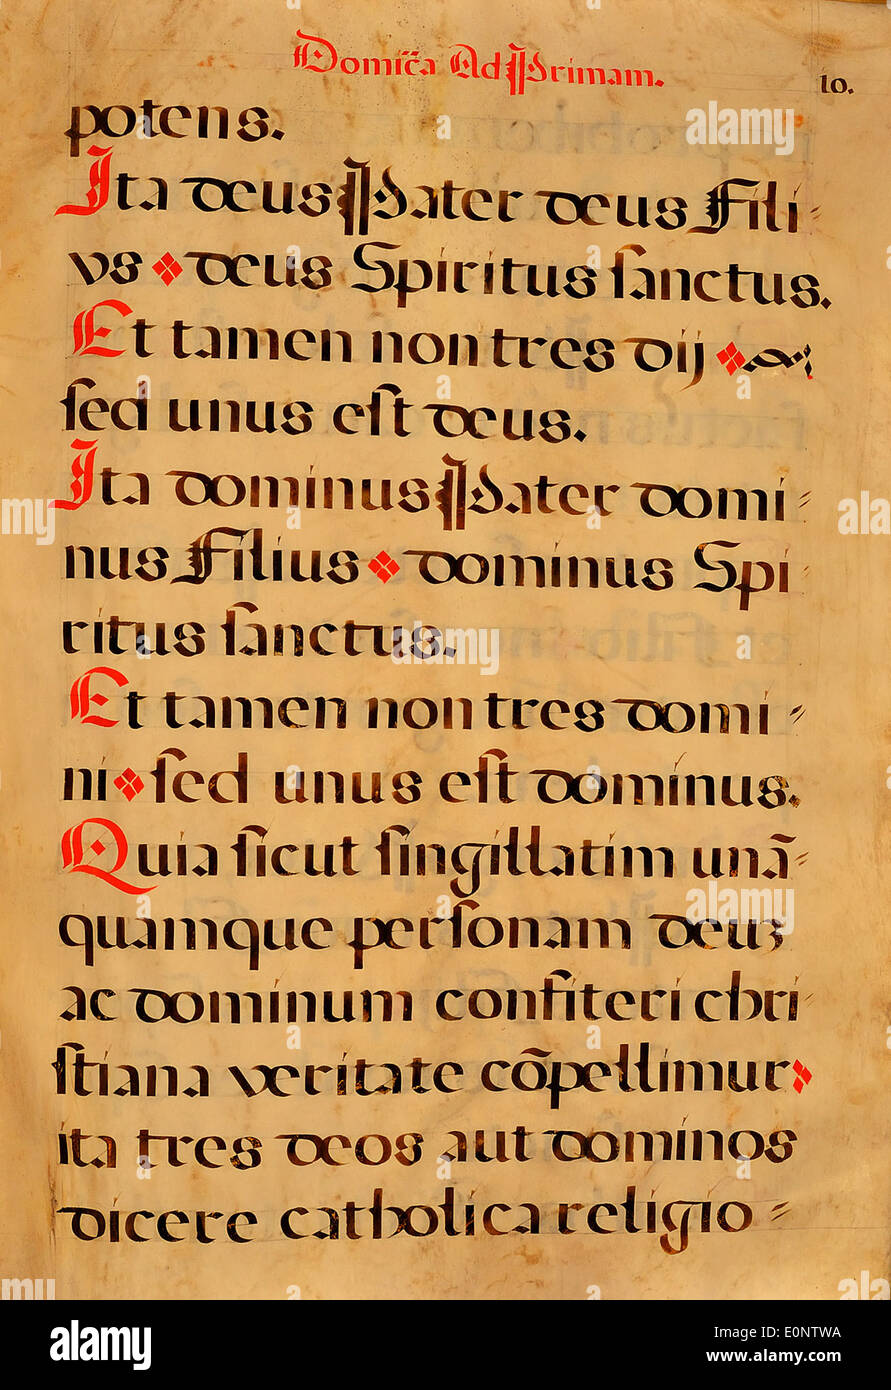 Domic̃a Ad Primam.
10.
potens.
Ita deus Pater deus Fili-
vs deus Spiritus sanctus.
Et tamen non tres dij
sed unus est deus.
Ita dominus Pater domi-
nus Filius dominus Spi
ritus sanctus.
Et tamen non tres domi-
ni sed unus est dominus.
Quia sicut singillatim unã-
quamque personam deuʒ
ac dominum confiteri chri-
stiana veritate cõpellimur
ita tres deos aut dominos
dicere catholica religio-
alamy
Image ID: E0NTWA
www.alamy.com